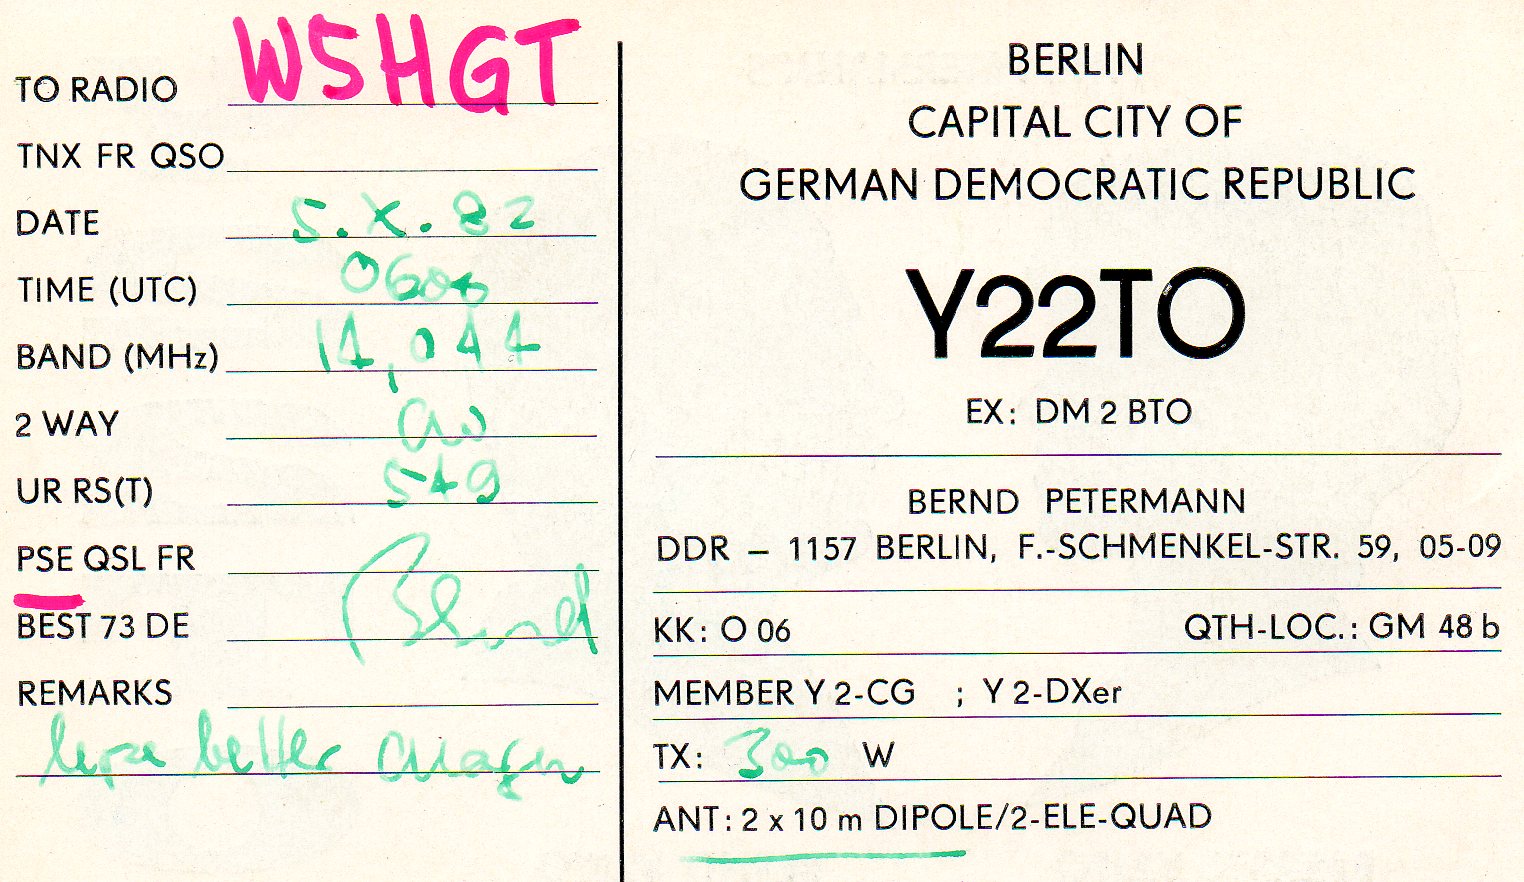 TO RADIO W5HGT
TNX FR QSO
DATE 5.X.82
TIME (UTC) 0606
BAND (MHz) 14,044
2 WAY CW
UR RS(T) 549
PSE QSL FR
BEST 73 DE Bernd
REMARKS
better
BERLIN
CAPITAL CITY OF
GERMAN DEMOCRATIC REPUBLIC
Y22TO
EX: DM 2 BTO
BERND PETERMANN
DDR – 1157 BERLIN, F.-SCHMENKEL-STR. 59, 05-09
KK: O 06 QTH-LOC.: GM 48 b
MEMBER Y 2-CG ; Y 2-DXer
TX: 300 W
ANT: 2 x 10 m DIPOLE/2-ELE-QUAD